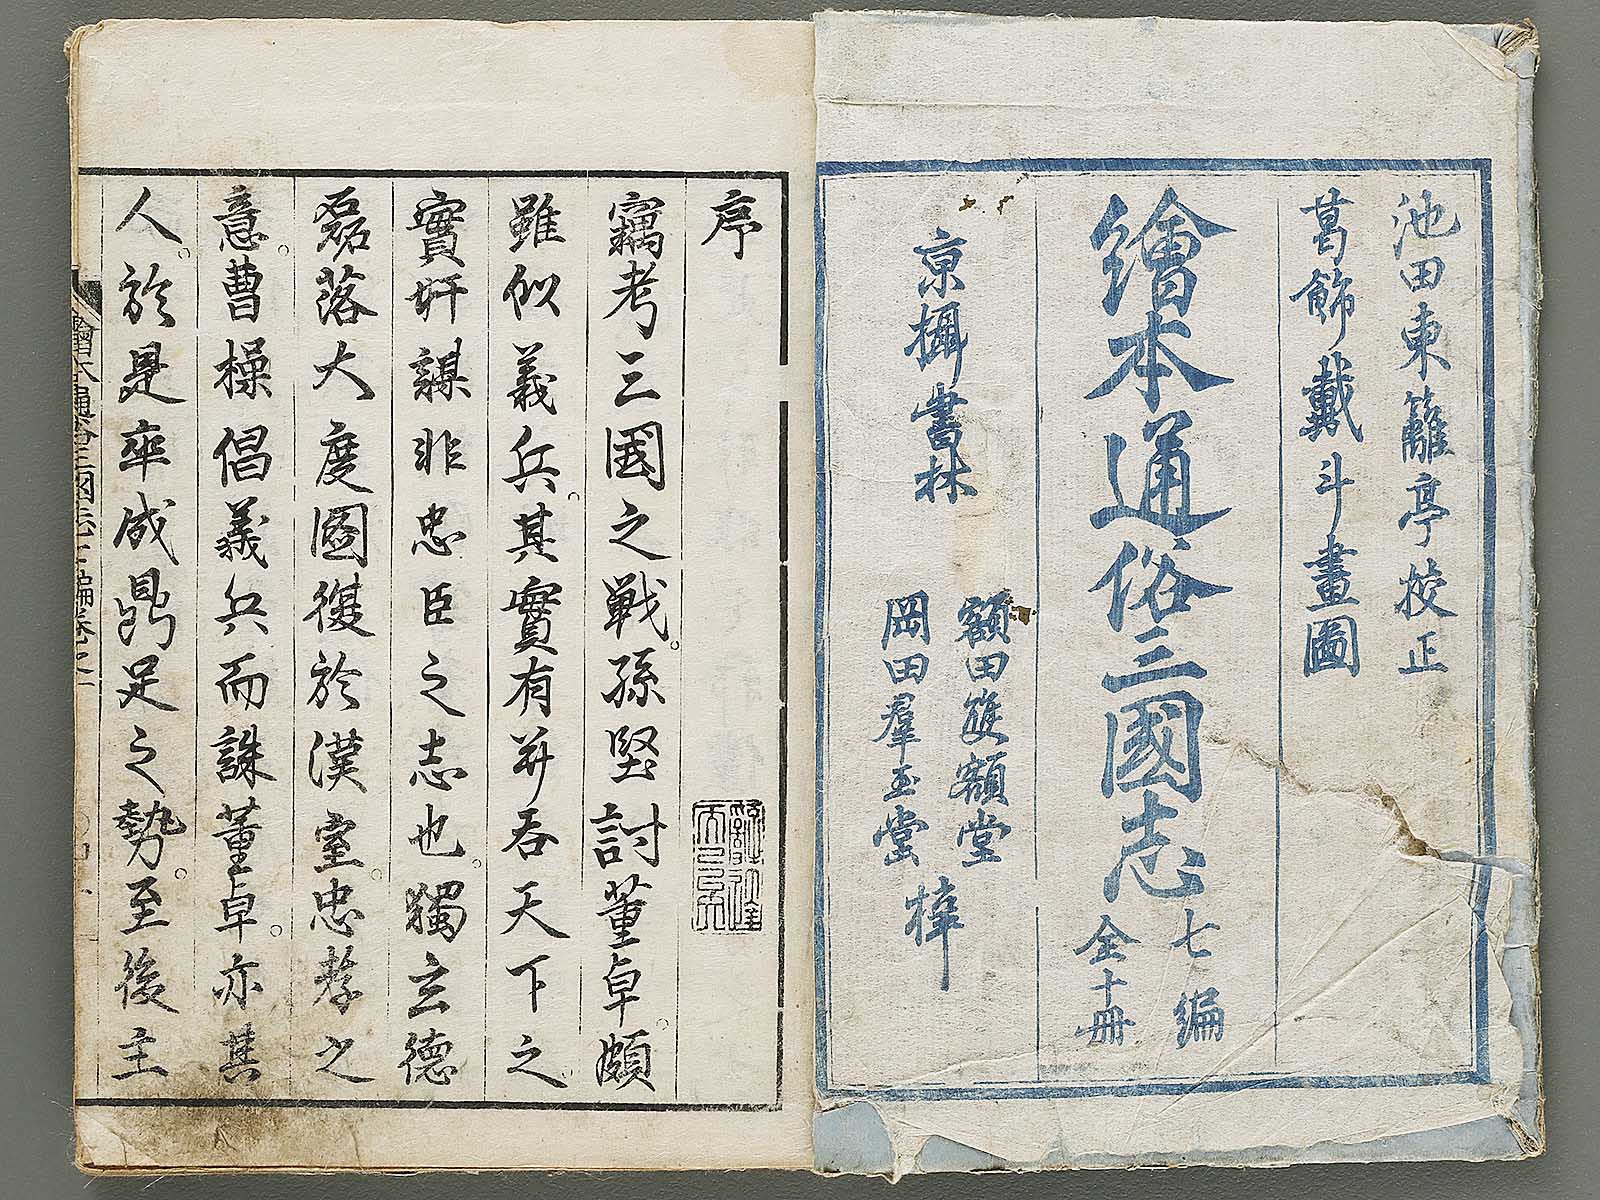 池田東籬亭挍正
葛飾戴斗畫圖
繪本通俗三國志
七編
全十冊
京攝書林
額田雙額堂
岡田羣玉堂
梓
序
竊考三國之戦。孫堅討董卓。頗
雖似義兵。其實有并吞天下之
實奸謀非忠臣之志也。獨玄德
磊落大度圖復於漢室。忠孝之
意。曹操倡義兵而誅董卓。亦其
人。於是卒成鼎足之勢。至後主